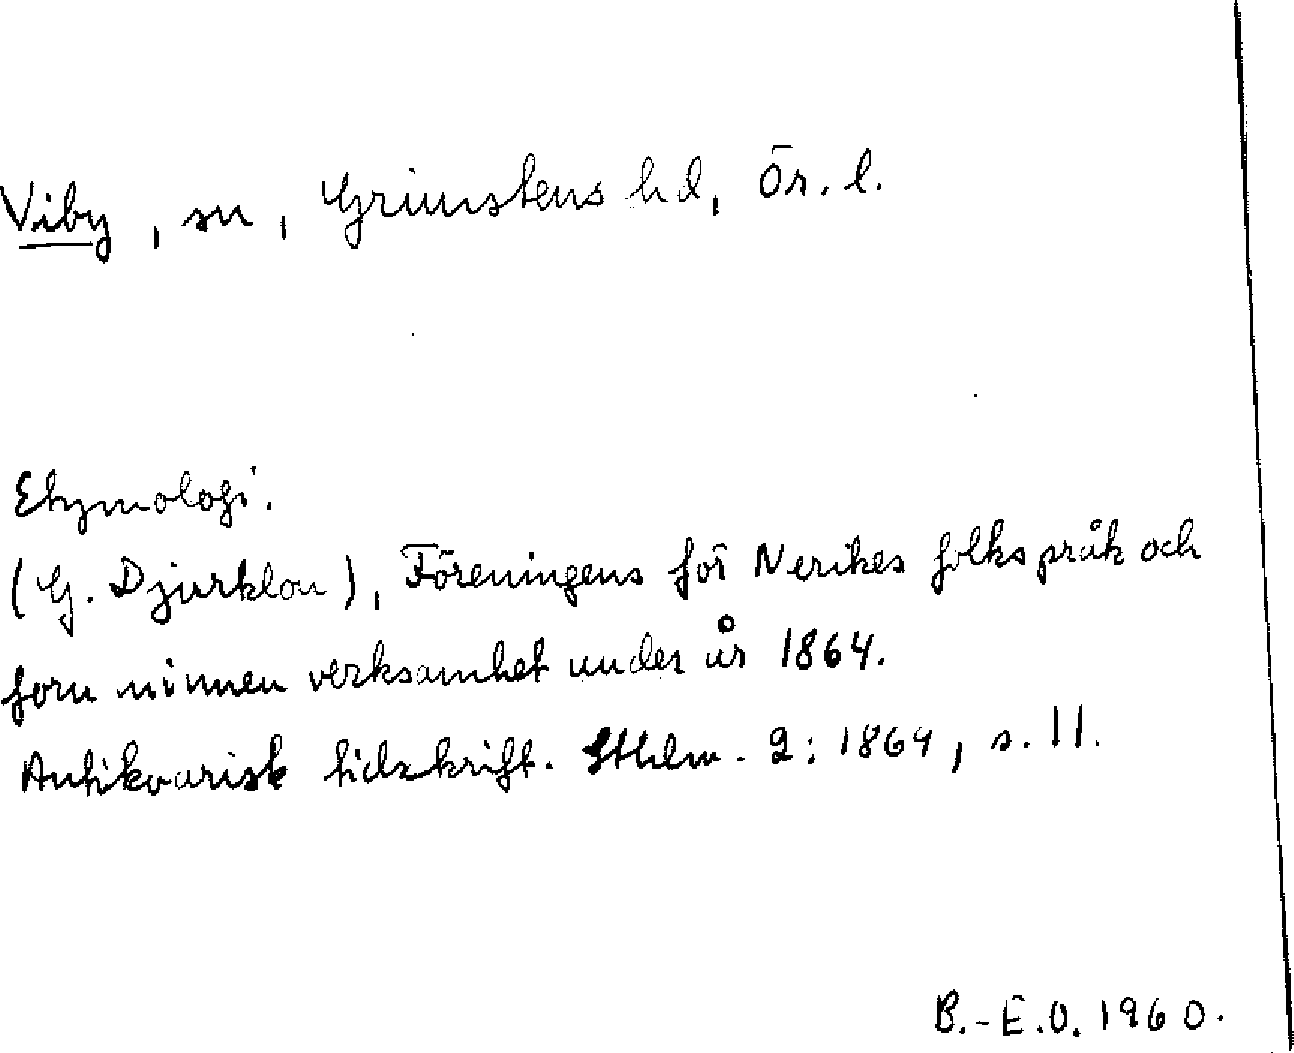 Viby, sn, Grimstens hd, Ör. l.
Etymologi.
(G. Djurklou), Föreningens för Nerikes folkspråk och
fornminnen verksamhet under år 1864.
Antikvarisk tidskrift. Sthlm. 2: 1864, s. 11.
B.-E.O. 1960.